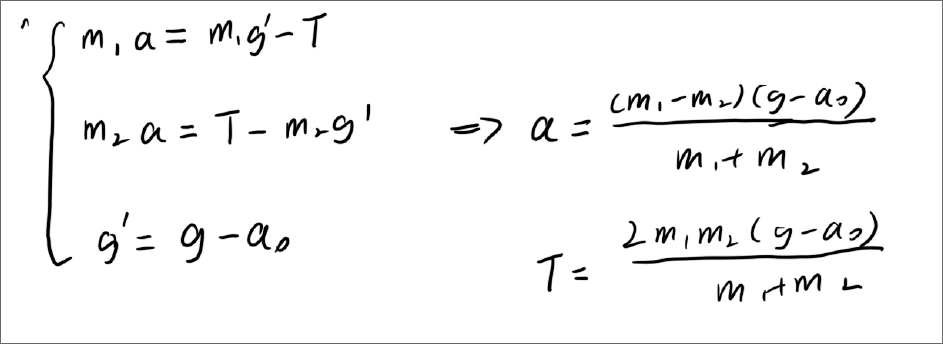 m₁a = m₁g′ - T
m₂a = T - m₂g′ ⇒ a = (m₁-m₂)(g-a₀) / m₁+m₂
g′ = g - a₀
T = 2m₁m₂(g-a₀) / m₁+m₂